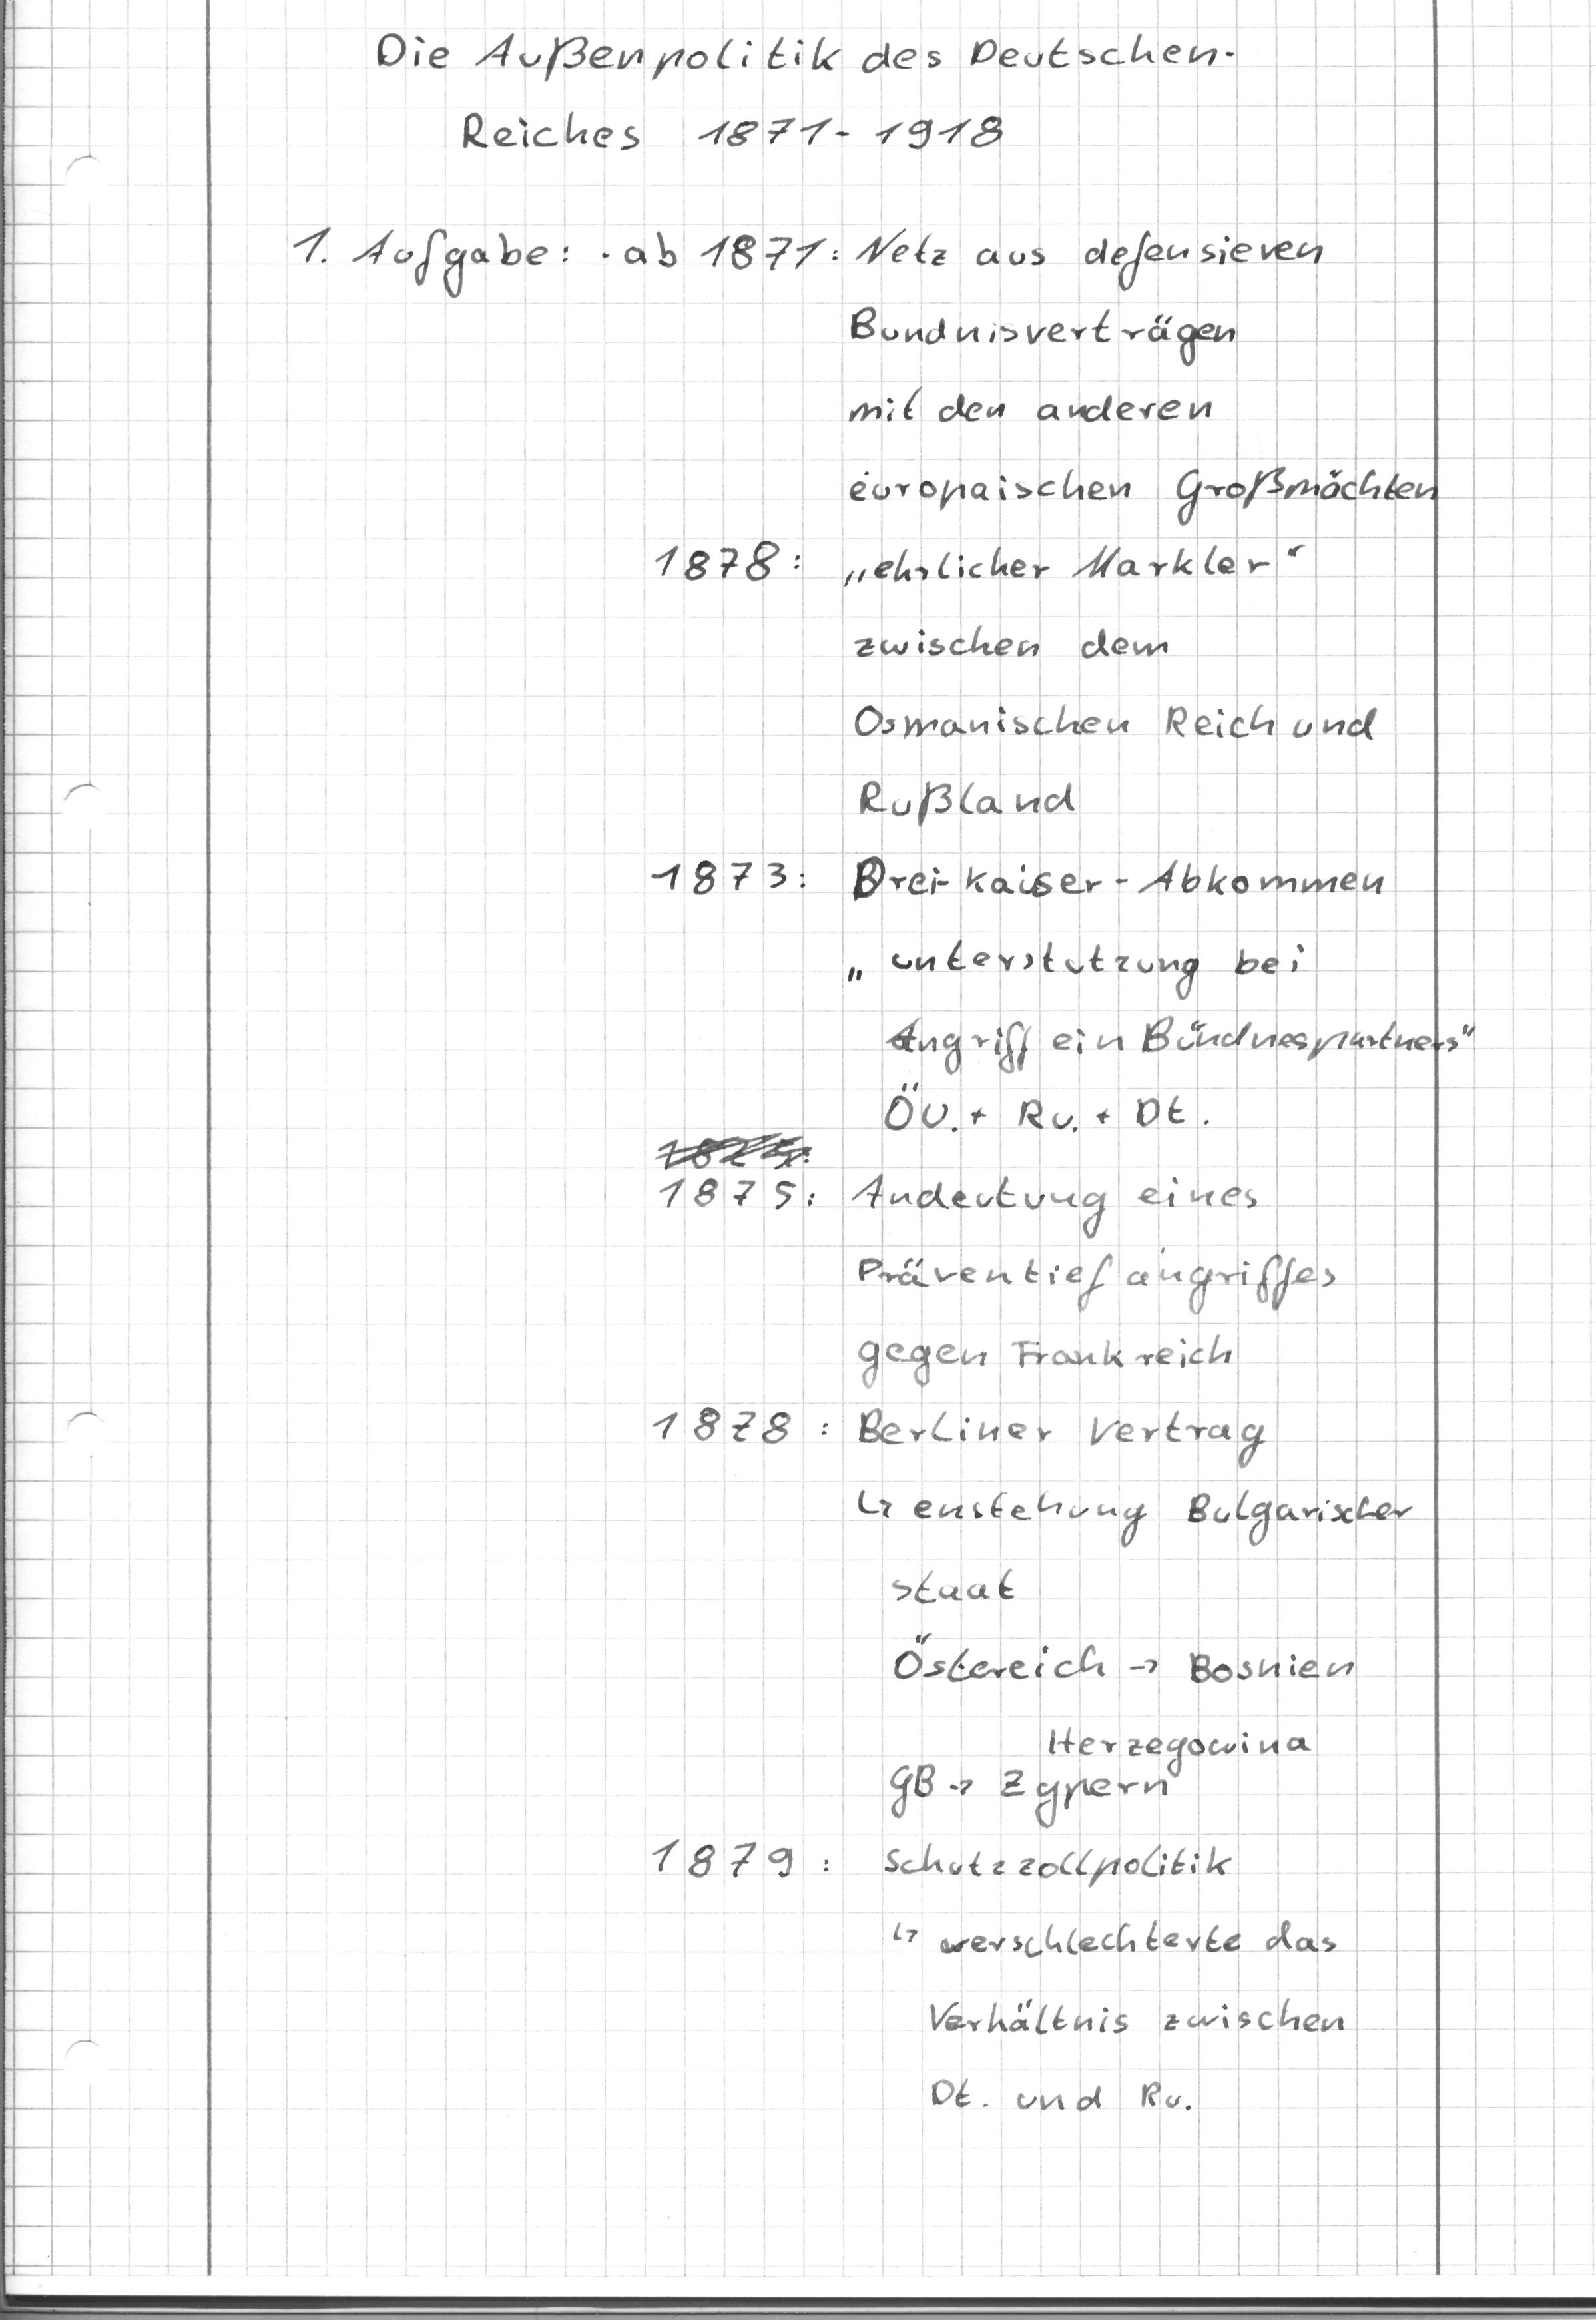 Die Außenpolitik des Deutschen-
Reiches 1871-1918
1. Aufgabe: · ab 1871: Netz aus defensieven
Bundnisverträgen
mit den anderen
europaischen Großmächten
1878: „ehrlicher Markler“
zwischen dem
Osmanischen Reich und
Rußland
1873: Drei-kaiser-Abkommen
„unterstutzung bei
Angriff ein Bündnespartners“
ÖU. + Ru. + Dt.
1875: Andeutung eines
Präventiefangriffes
gegen Frankreich
1878: Berliner Vertrag
↳ enstehung Bulgarischer
staat
Östereich → Bosnien
Herzegowina
GB → Zypern
1879: Schutzzollpolitik
↳ verschlechterte das
Verhältnis zwischen
Dt. und Ru.